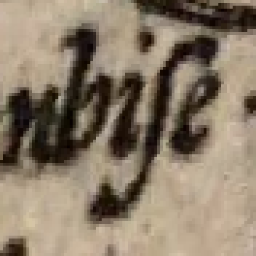 nbiſe